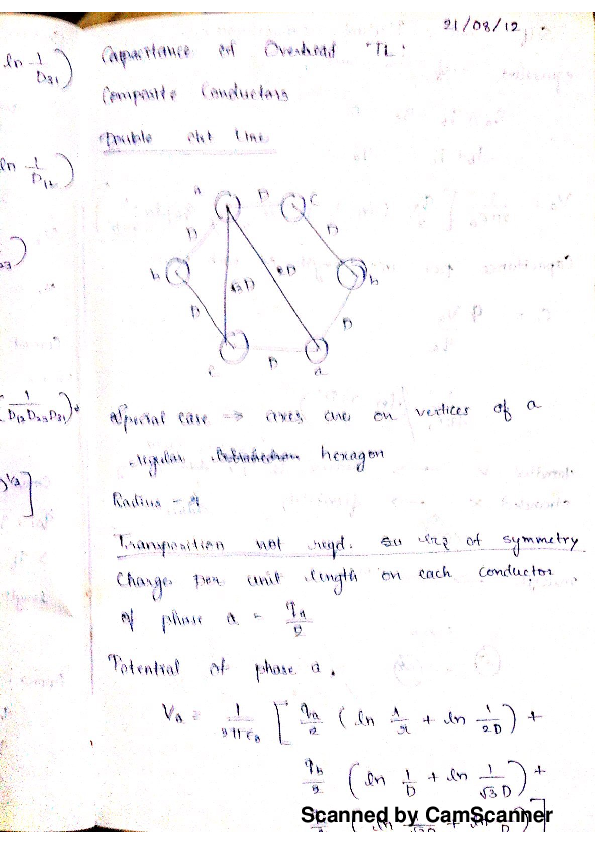 21/08/12
ln 1/D31)
Capacitance of Overhead TL.
Composite Conductors
Double ckt Line
ln 1/D12)
a
D
C
D
D
b
√3D
2D
b
D
D
c
D
a
1/D12D23D31)
Special case → axes are on vertices of a
regular hexagon
Radius - r
Transposition not reqd. of symmetry
Charge per unit length on each conductor
of phase a = qa/2
Potential of phase a.
Va = 1/2πε0 [ qa/2 (ln 1/r + ln 1/2D) +
qb/2 (ln 1/D + ln 1/√3D) +
Scanned by CamScanner